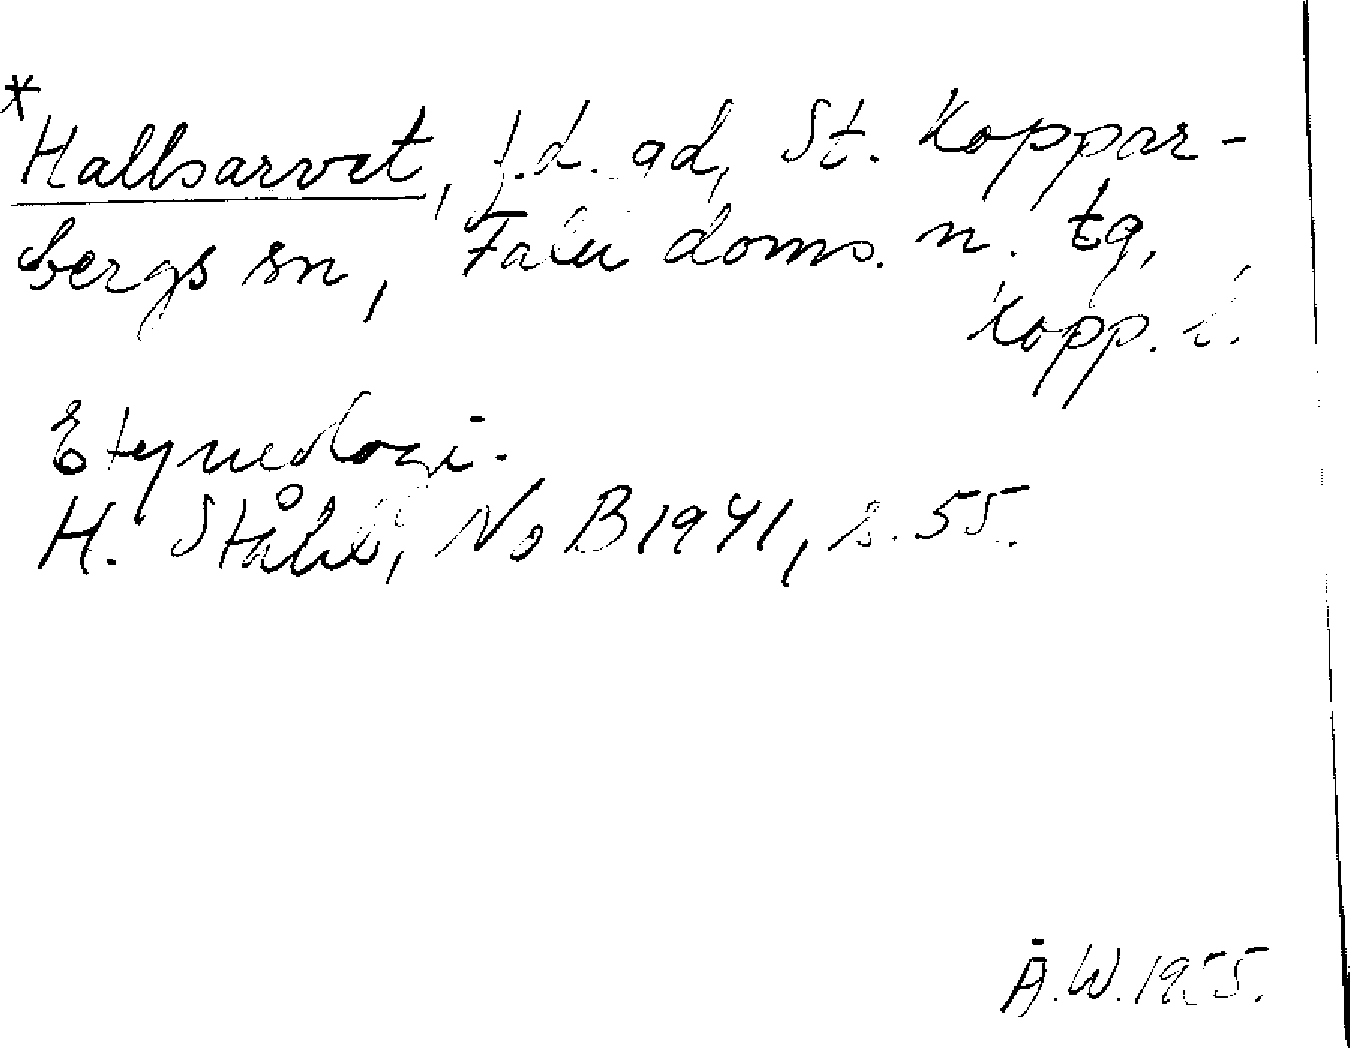 * Hallsarvet, f.d. gd, St. Koppar-
bergs sn, Falu doms. n. tg,
Kopp. l.
Etymologi.
H. Ståhl, NoB 1941, s. 55.
Å.W. 1955.